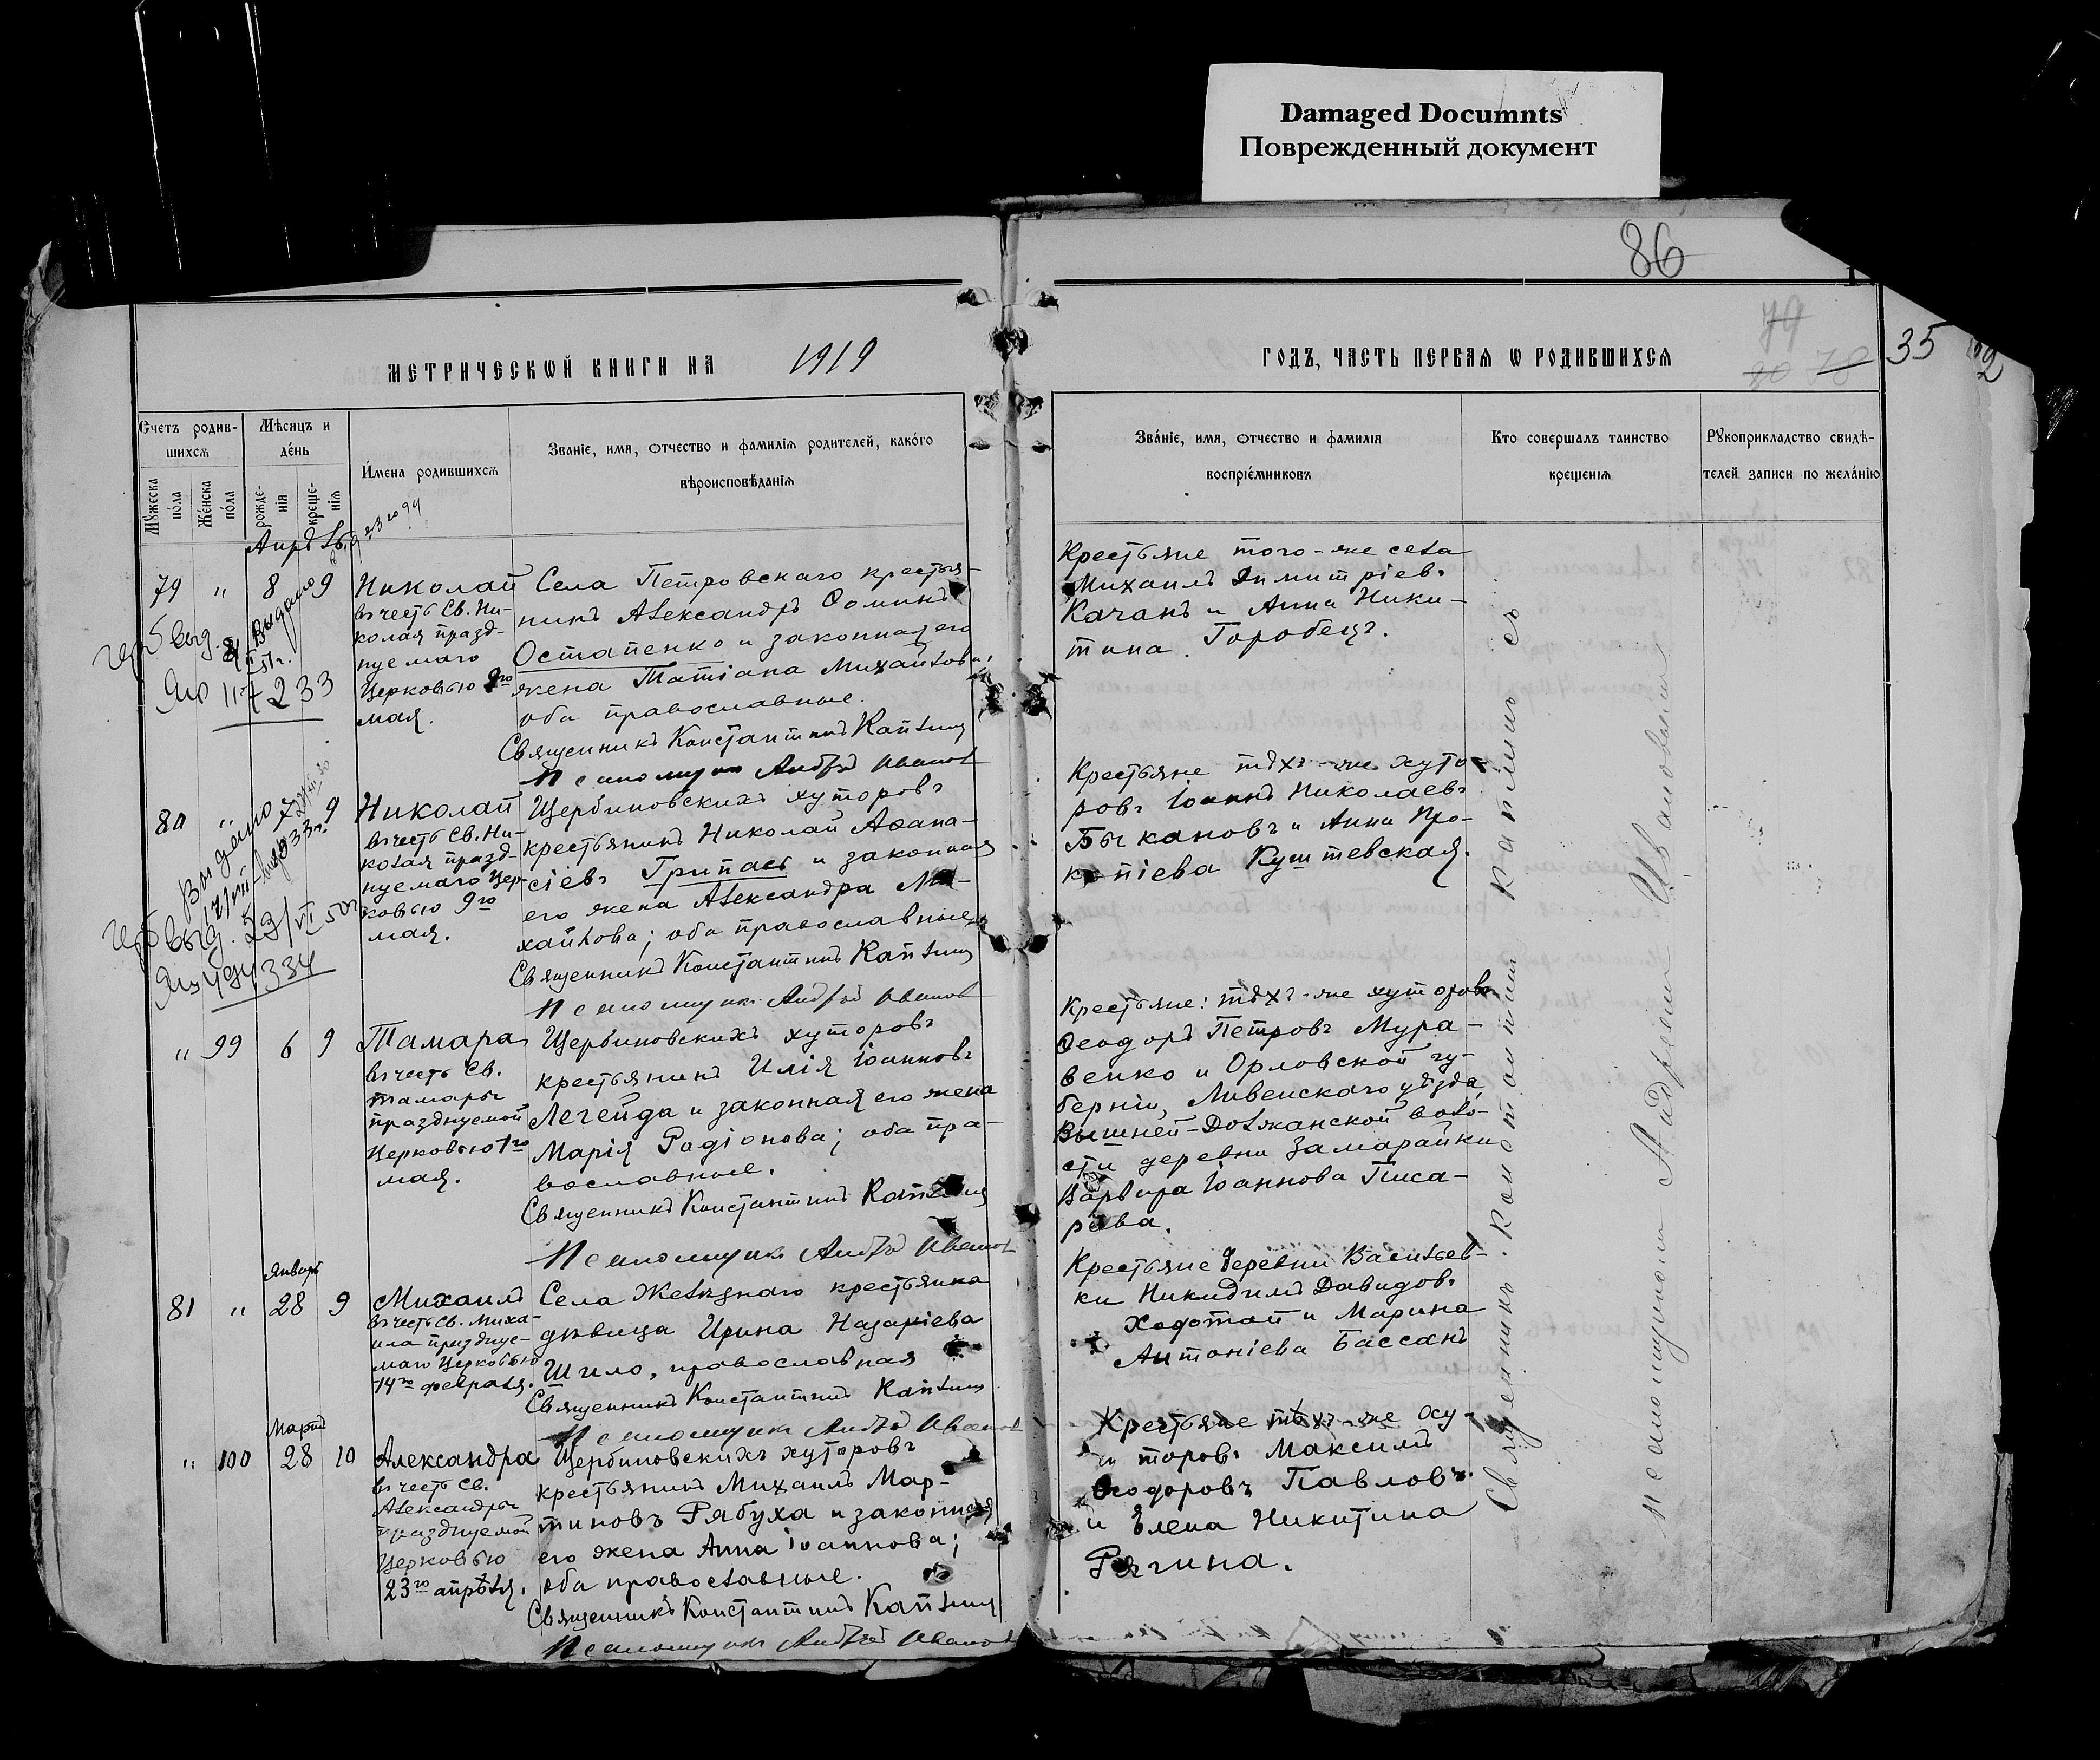 Damaged Documnts
Поврежденный документ
86
79
80 78
35
МЕТРИЧЕСКѠЙ КНИГИ НА 1919
ГОДЪ, ЧАСТЬ ПЕРВАЯ Ѡ РОДИВШИХСѦ
Счетъ родив-
шихсѧ
Мѣсяцъ и
де́нь
Мꙋжеска
по́ла
Же́нска
по́ла
рожде-
нія
креще-
нія
И́мена родившихсѧ
Званіе, имя, отчество и фамилія родителей, како́го
вѣроисповѣданія
Зва́ніе, имя, отчество и фамилія
воспріе́мниковъ
Кто совершалъ таинство
крещенія
Рꙋкоприкладство свидѣ-
телей записи по жела́нію
79 " 8 9
Николай
въ честь Св. Ни-
колая празд-
нуемаго
Церковью 9го
мая.
Села Петровскаго крестья-
нинъ Александръ Ѳоминъ
Остапенко и законная его
жена Татіана Михайлова;
оба православные.
Священникъ Константинъ Капѣлиц
Псаломщикъ Андрей Иванов
Крестьяне того-же села
Михаилъ Димитріевъ
Качанъ и Анна Ники-
тина Горобецъ.
80 " 7 9
Николай
въ честь Св. Ни-
колая празд-
нуемаго Цер-
ковью 9го
мая.
Щербиновскихъ хуторовъ
крестьянинъ Николай Аѳана-
сіевъ Грипась и законная
его жена Александра Ми-
хайлова; оба православные
Священникъ Константинъ Капѣлиц
Псаломщикъ Андрей Иванов
Крестьяне тѣхъ-же хуто-
ровъ Іоаннъ Николаевъ
Быкановъ и Анна Про-
копіева Куштевская.
" 99 6 9
Тамара
въ честь Св.
Тамары
празднуемой
Церковью 1го
мая.
Щербиновскихъ хуторовъ
крестьянинъ Илія Іоанновъ
Легейда и законная его жена
Марія Родіонова; оба пра-
вославные.
Священникъ Константинъ Капѣлиц
Псаломщикъ Андрей Иванов
Крестьяне: тѣхъ-же хуторовъ
Ѳеодоръ Петровъ Мура-
венко и Орловской гу-
берніи, Ливенскаго уѣзда,
Вышней-Должанской воло-
сти деревни Замарайки
Варвара Іоаннова Писа-
рева.
Январь
81 " 28 9
Михаилъ
въ честь Св. Миха-
ила празднуе-
маго Церковью
14го февраля.
Села Желѣзнаго крестьянка
дѣвица Ирина Назаріева
Шило, православная
Священникъ Константинъ Капѣлиц
Псаломщикъ Андрей Иванов
Крестьяне деревни Васильев-
ки Никидимъ Давидовъ
Ходотай и Марина
Антоніева Бассанъ
Мартъ
" 100 28 10
Александра
въ честь Св.
Александры
празднуемой
Церковью
23го апрѣля.
Щербиновскихъ хуторовъ
крестьянинъ Михаилъ Мар-
тиновъ Рябуха и законная
его жена Анна Іоаннова;
оба православные.
Священникъ Константинъ Капѣлиц
Псаломщикъ Андрей Иванов
Крестьяне тѣхъ-же ху-
торовъ Максимъ
Ѳеодоровъ Павловъ
и Елена Никитина
Рягина.
Священникъ Константинъ
Псаломщикъ Андрей Ивановъ